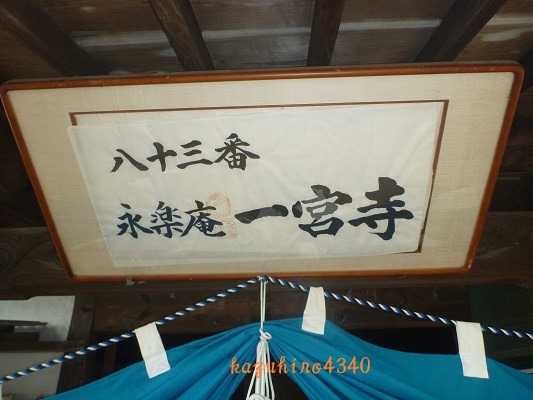 八十三番
永楽庵 一宮寺
kazuhino4340